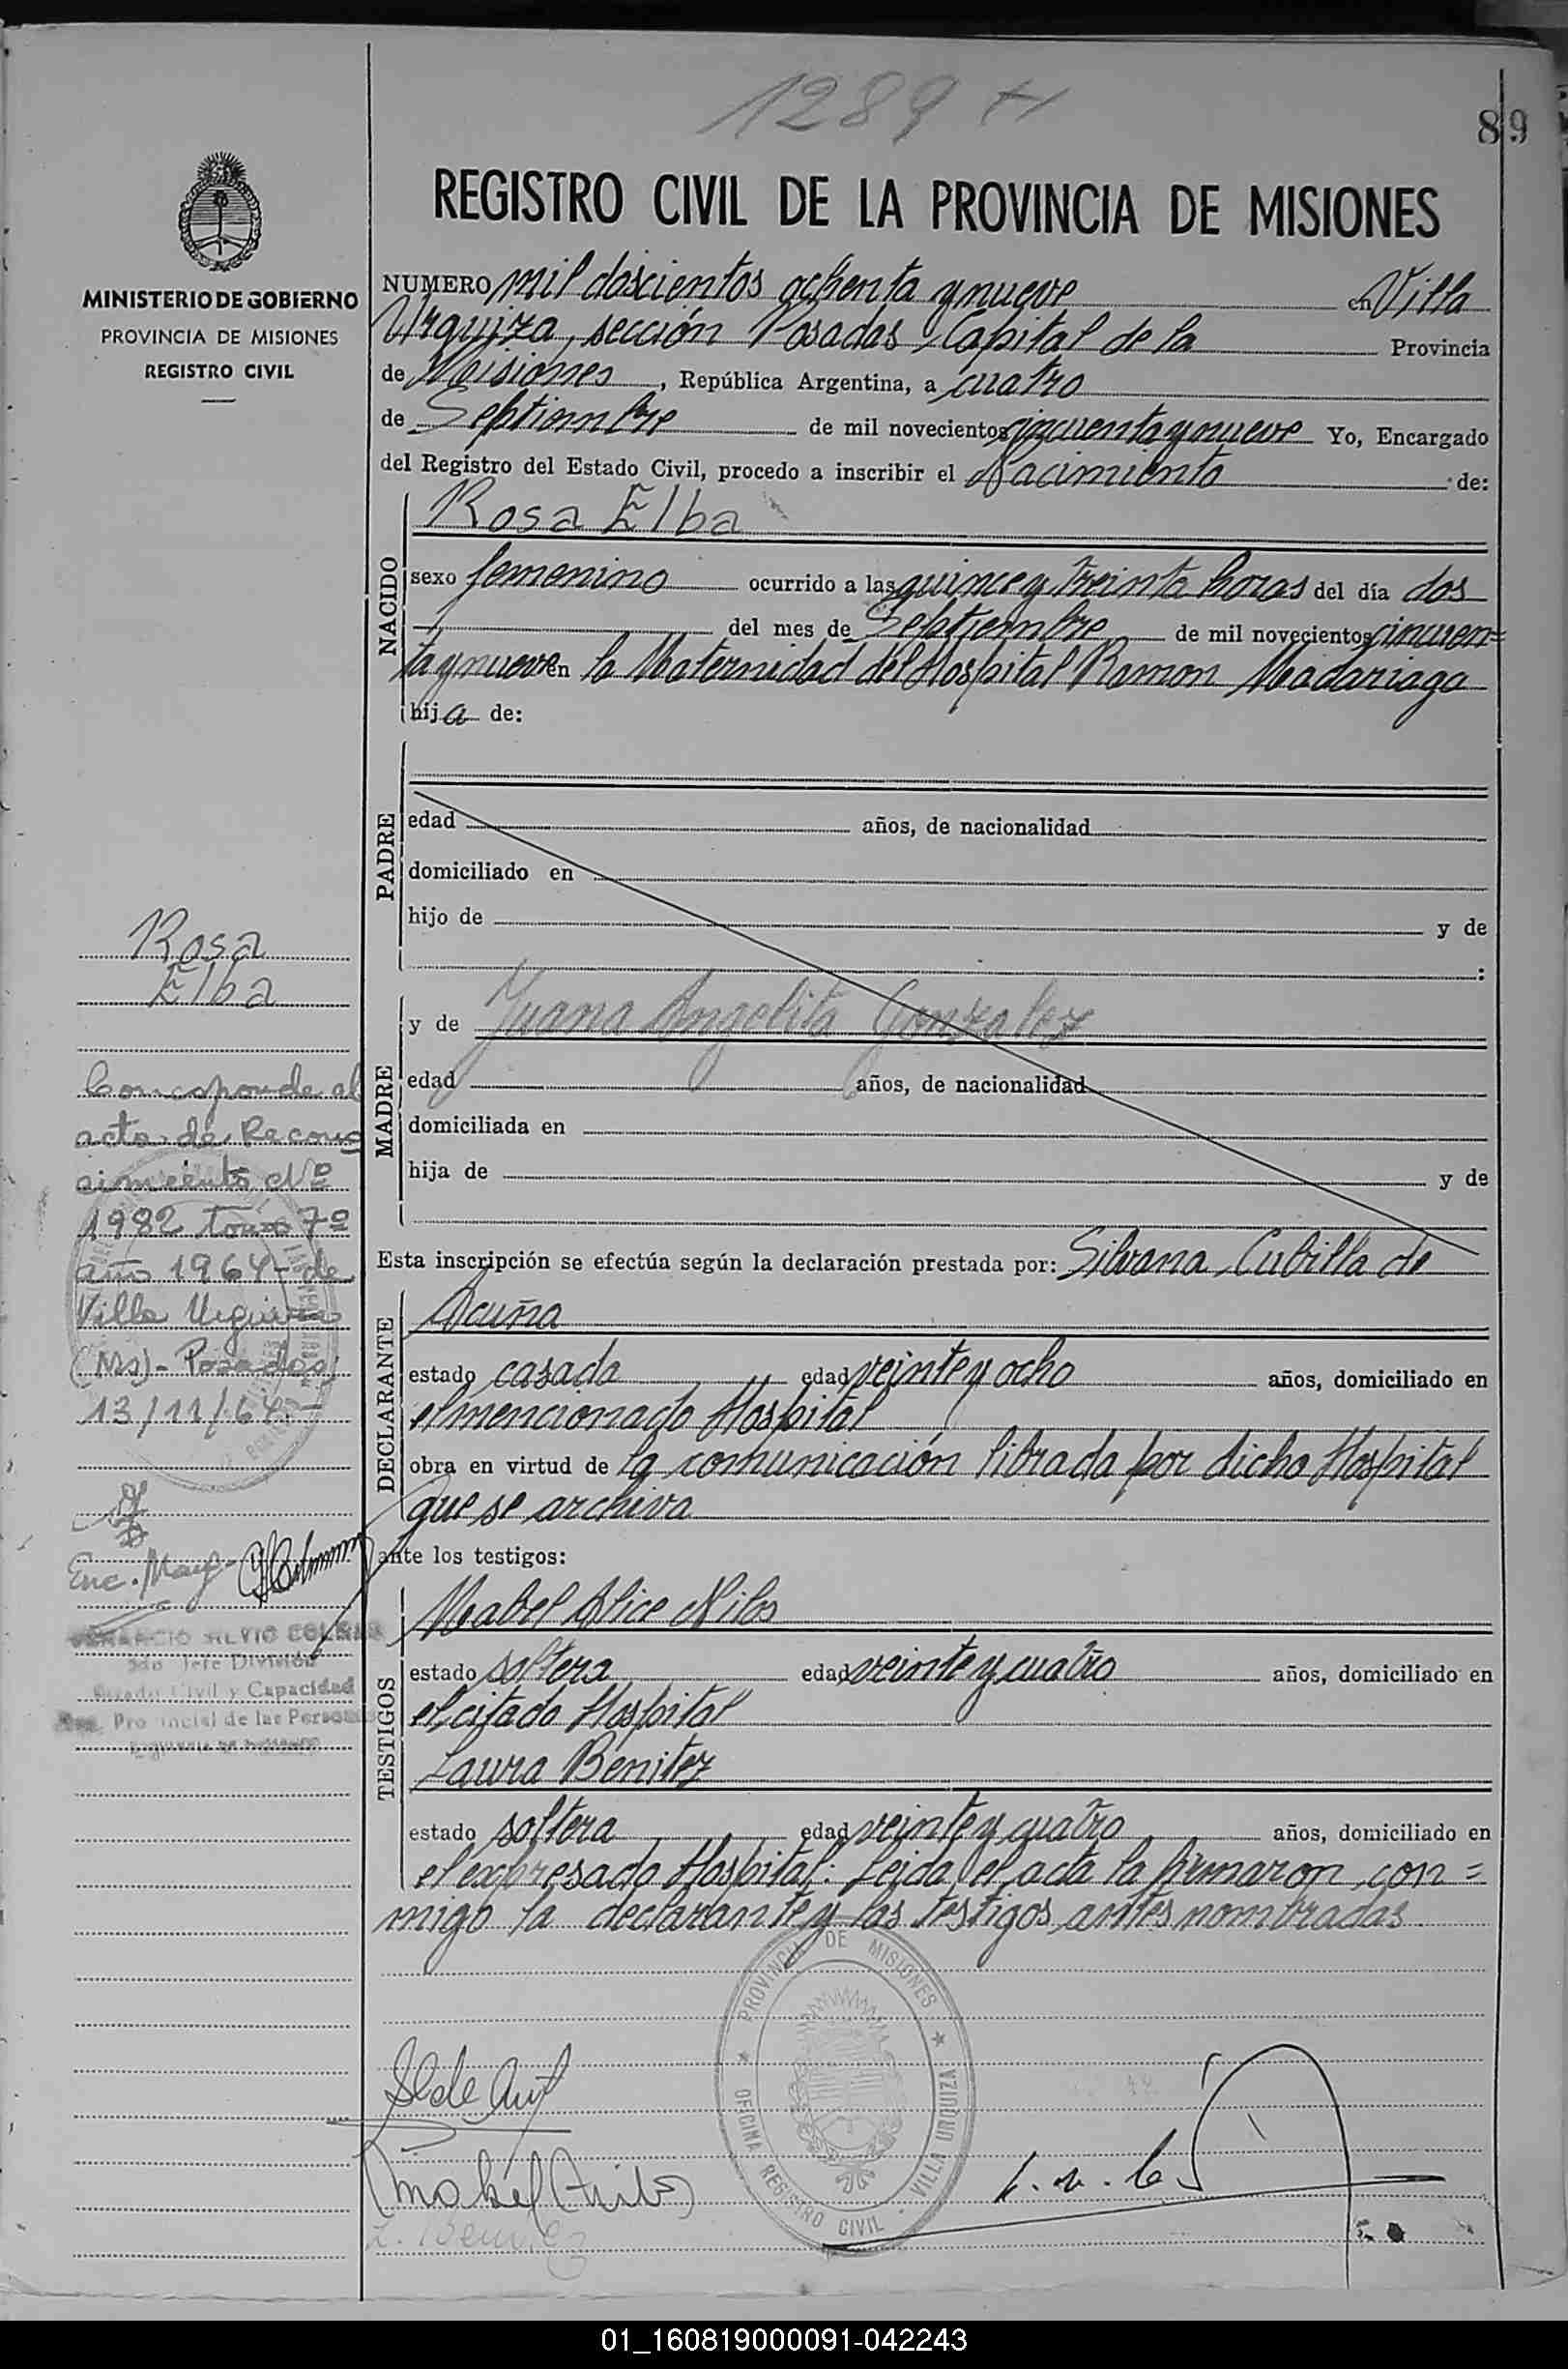 1289
89
REGISTRO CIVIL DE LA PROVINCIA DE MISIONES
MINISTERIO DE GOBIERNO
PROVINCIA DE MISIONES
REGISTRO CIVIL
NUMERO mil doscientos ochenta y nueve en Villa
Urquiza, sección Posadas Capital de la Provincia
de Misiones, República Argentina, a cuatro
de Septiembre de mil novecientos cincuenta y nueve Yo, Encargado
del Registro del Estado Civil, procedo a inscribir el Nacimiento de:
NACIDO
Rosa Elba
sexo femenino ocurrido a las quince y treinta horas del día dos
del mes de Septiembre de mil novecientos cincuen=
ta y nueve en la Maternidad del Hospital Ramon Madariaga
hija de:
PADRE
edad años, de nacionalidad
domiciliado en
hijo de y de
:
MADRE
y de Juana Angelita Gonzalez
edad años, de nacionalidad
domiciliada en
hija de y de
Esta inscripción se efectúa según la declaración prestada por: Silvana Cubilla de
DECLARANTE
Acuña
estado casada edad veinte y ocho años, domiciliado en
el mencionado Hospital
obra en virtud de la comunicación librada por dicho Hospital
que se archiva
ante los testigos:
TESTIGOS
Mabel Alice Nilos
estado soltera edad veinte y cuatro años, domiciliado en
el citado Hospital
Laura Benitez
estado soltera edad veinte y cuatro años, domiciliado en
el expresado Hospital: Leida el acta la firmaron con=
migo la declarante y las testigos antes nombradas.
Rosa
Elba
Corresponde al
acta de Recono
cimiento Nº
1982 tomo 7º
año 1964 de
Villa Urquiza
(Ms)- Posadas
13/11/64.-
Enc. Marg-
SILVIO
Jefe División
Estado Civil y Capacidad
Provincial de las Personas
PROVINCIA DE MISIONES
OFICINA REGISTRO CIVIL - VILLA URQUIZA
S C de Acuñ
Mabel Nilos
L. Benitez
01_160819000091-042243